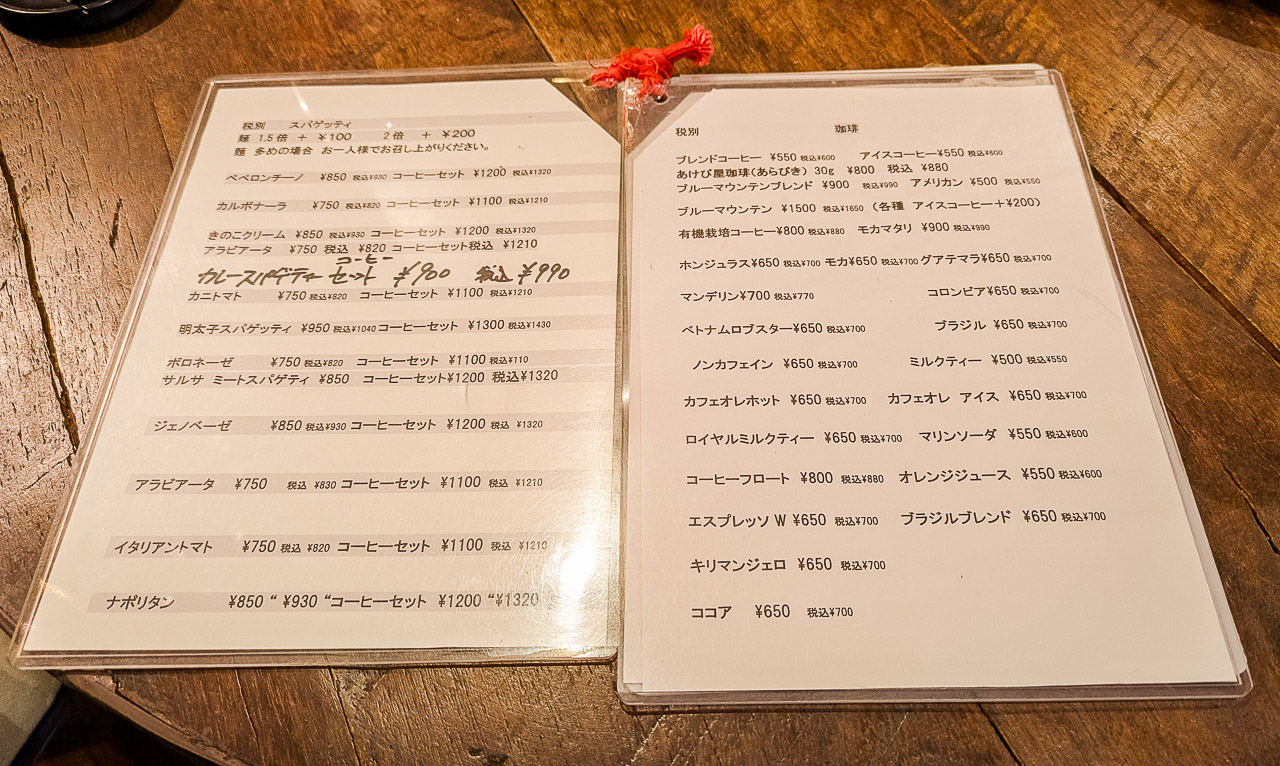 税別 スパゲッティ
麺 1.5倍 + ¥100 2倍 + ¥200
麺 多めの場合 お一人様でお召し上がりください。
ペペロンチーノ ¥850 税込¥930 コーヒーセット ¥1200 税込¥1320
カルボナーラ ¥750 税込¥820 コーヒーセット ¥1100 税込¥1210
きのこクリーム ¥850 税込¥930 コーヒーセット ¥1200 税込¥1320
アラビアータ ¥750 税込 ¥820 コーヒーセット税込 ¥1210
コーヒー
カレースパゲティー セット ¥900 税込 ¥990
カニトマト ¥750 税込¥820 コーヒーセット ¥1100 税込¥1210
明太子スパゲッティ ¥950 税込¥1040 コーヒーセット ¥1300 税込¥1430
ボロネーゼ ¥750 税込¥820 コーヒーセット ¥1100 税込¥110
サルサ ミートスパゲティ ¥850 コーヒーセット¥1200 税込¥1320
ジェノベーゼ ¥850 税込¥930 コーヒーセット ¥1200 税込 ¥1320
アラビアータ ¥750 税込 ¥830 コーヒーセット ¥1100 税込 ¥1210
イタリアントマト ¥750 税込 ¥820 コーヒーセット ¥1100 税込 ¥1210
ナポリタン ¥850 “ ¥930 “コーヒーセット ¥1200 “¥1320
税別 珈琲
ブレンドコーヒー ¥550 税込¥600 アイスコーヒー¥550 税込¥600
あけび屋珈琲(あらびき) 30g ¥800 税込 ¥880
ブルーマウンテンブレンド ¥900 税込¥990 アメリカン ¥500 税込¥550
ブルーマウンテン ¥1500 税込¥1650 (各種 アイスコーヒー+¥200)
有機栽培コーヒー¥800 税込¥880 モカマタリ ¥900 税込¥990
ホンジュラス¥650 税込¥700 モカ¥650 税込¥700 グアテマラ¥650 税込¥700
マンデリン¥700 税込¥770 コロンビア¥650 税込¥700
ベトナムロブスター¥650 税込¥700 ブラジル ¥650 税込¥700
ノンカフェイン ¥650 税込¥700 ミルクティー ¥500 税込¥550
カフェオレホット ¥650 税込¥700 カフェオレ アイス ¥650 税込¥700
ロイヤルミルクティー ¥650 税込¥700 マリンソーダ ¥550 税込¥600
コーヒーフロート ¥800 税込¥880 オレンジジュース ¥550 税込¥600
エスプレッソ W ¥650 税込¥700 ブラジルブレンド ¥650 税込¥700
キリマンジェロ ¥650 税込¥700
ココア ¥650 税込¥700